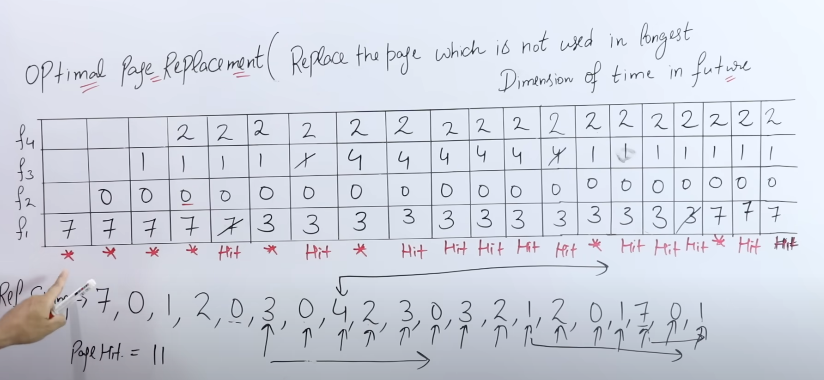 Optimal Page Replacement ( Replace the page which is not used in longest
Dimension of time in future
f4 2 2 2 2 2 2 2 2 2 2 2 2 2 2 2 2 2
f3 1 1 1 1 1 4 4 4 4 4 4 1 1 1 1 1 1 1
f2 0 0 0 0 0 0 0 0 0 0 0 0 0 0 0 0 0 0 0
f1 7 7 7 7 7 3 3 3 3 3 3 3 3 3 3 3 3 7 7 7
* * * * Hit * Hit * Hit Hit Hit Hit Hit * Hit Hit Hit * Hit Hit
→ 7, 0, 1, 2, 0, 3, 0, 4, 2, 3, 0, 3, 2, 1, 2, 0, 1, 7, 0, 1
Page Hit = 11